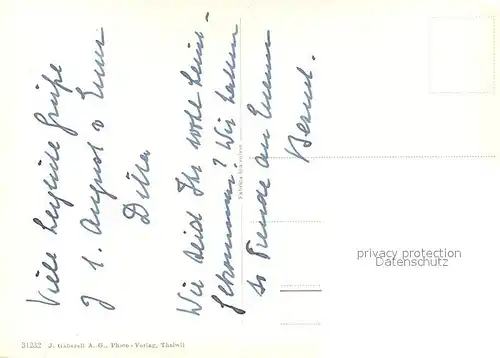 Viele herzliche Grüße
z 1. August v Eurer
Dilla
Wie seid Ihr wohl heim-
gekommen? Wir hatten
so Freude an Eurem
Besuch.
31232 J. Gaberell A. G., Photo-Verlag, Thalwil
privacy protection
Datenschutz